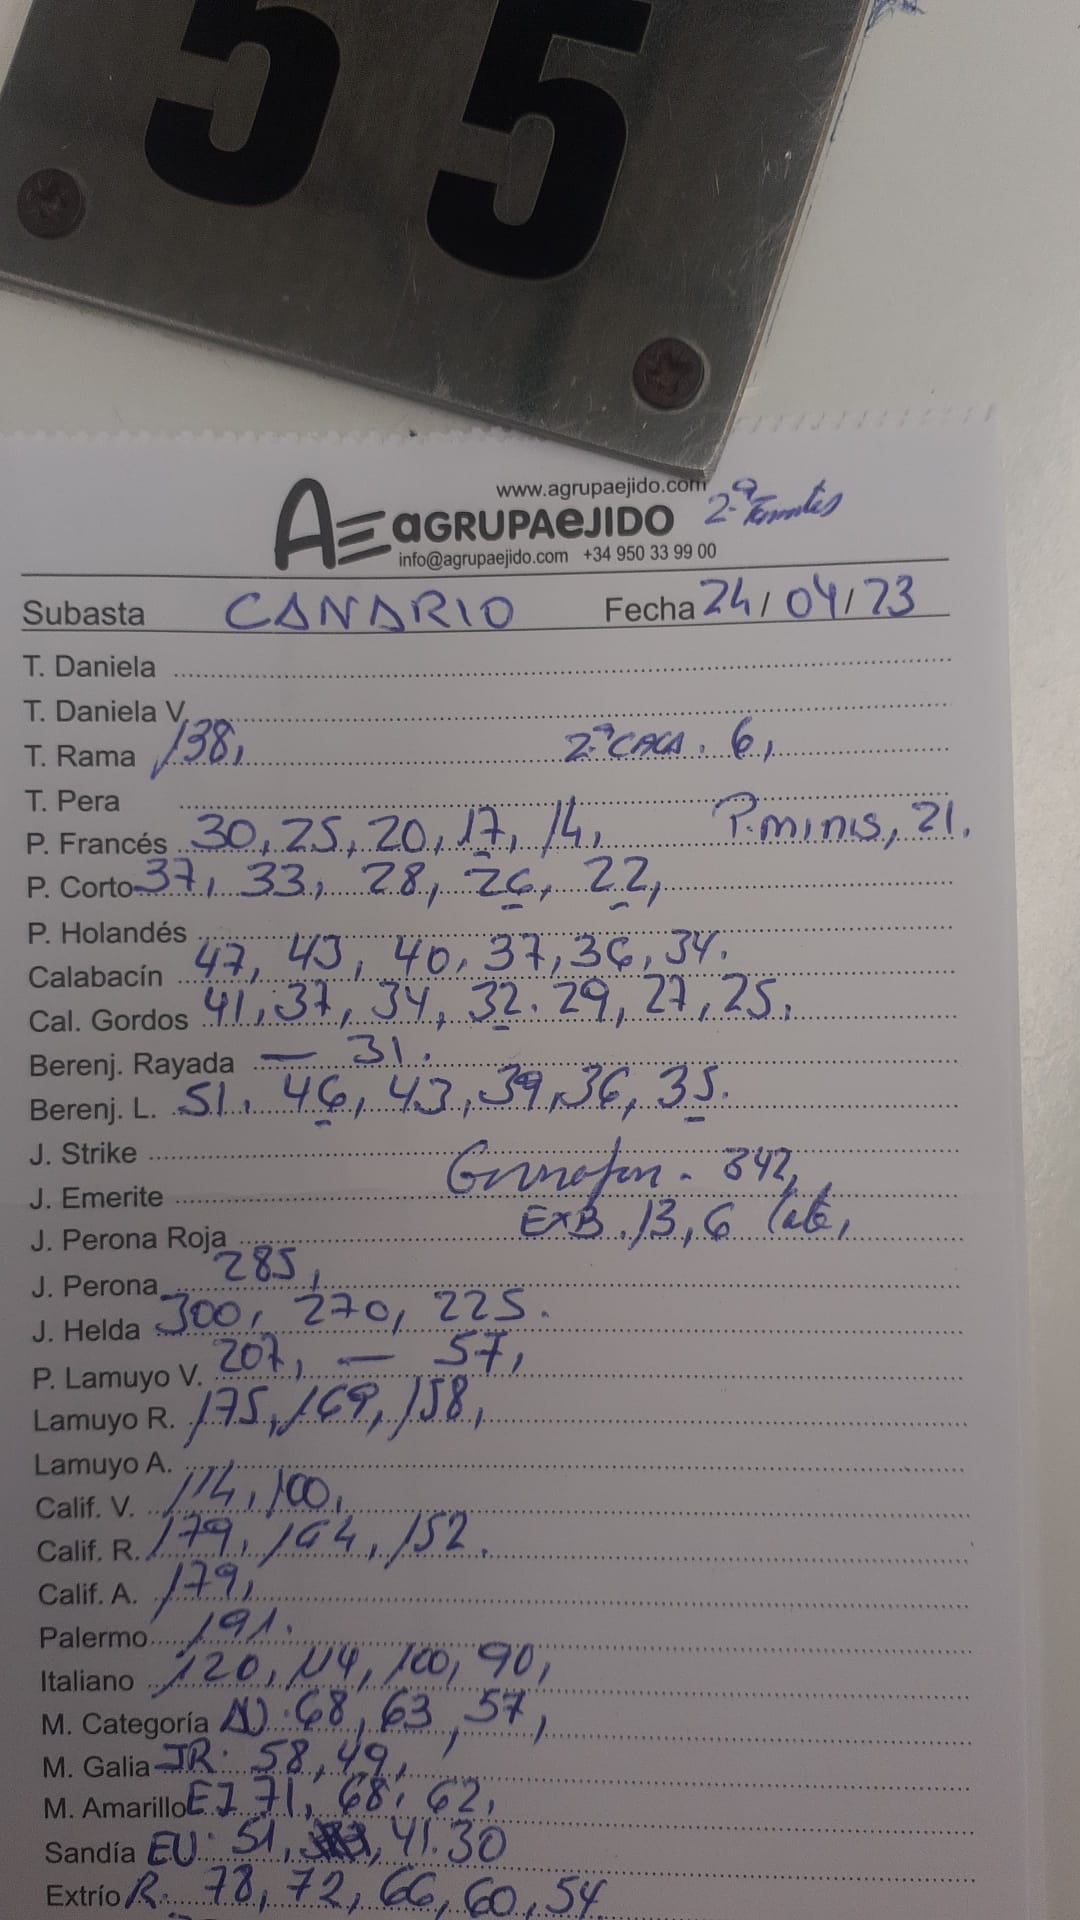 55
www.agrupaejido.com
AE aGRUPAeJIDO 2ª Tomates
info@agrupaejido.com +34 950 33 99 00
Subasta CANARIO Fecha 24/04/23
T. Daniela
T. Daniela V
T. Rama 138, 2ª CAÑA. 6,
T. Pera
P. Francés 30, 25, 20, 17, 14, P. minis, 21.
P. Corto 37, 33, 28, 26, 22,
P. Holandés
Calabacín 47, 43, 40, 37, 36, 34.
Cal. Gordos 41, 37, 34, 32. 29, 27, 25.
Berenj. Rayada — 31.
Berenj. L. 51, 46, 43, 39, 36, 35.
J. Strike
J. Emerite 342,
J. Perona Roja ExB. 13, 6
J. Perona 285,
J. Helda 300, 270, 225.
P. Lamuyo V. 207, — 57,
Lamuyo R. 175, 169, 158,
Lamuyo A.
Calif. V. 114, 100,
Calif. R. 179, 164, 152.
Calif. A. 179,
Palermo 191.
Italiano 120, 114, 100, 90,
M. Categoría 68, 63, 57,
M. Galia JR. 58, 49,
M. Amarillo EJ 71, 68, 62,
Sandía EU. 51, 41. 30
Extrío R. 78, 72, 66, 60, 54